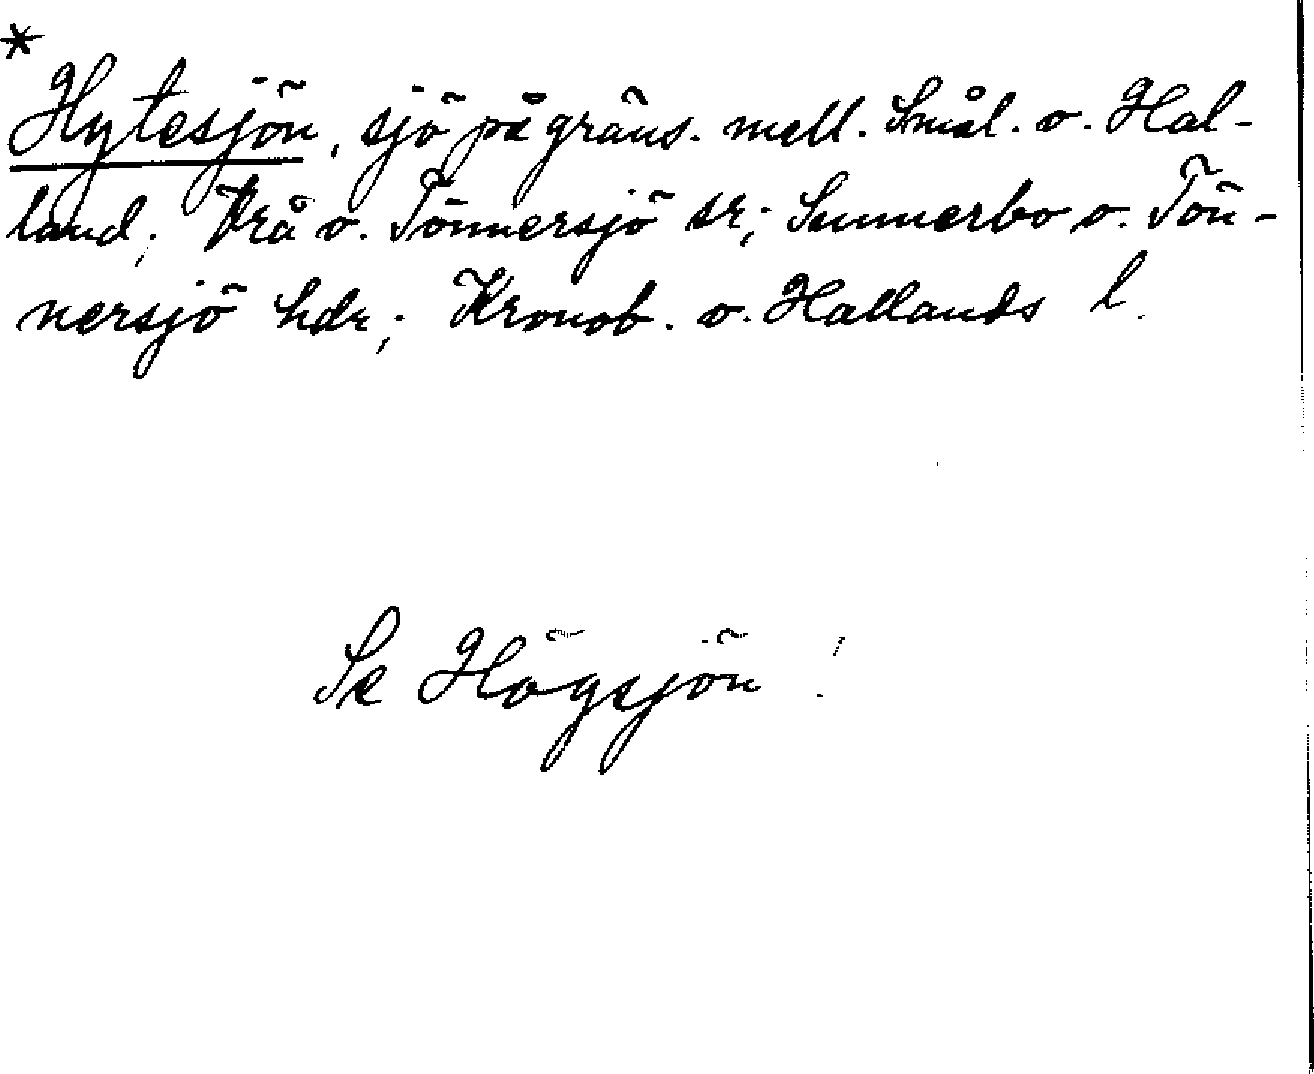 *
Hytesjön, sjö på gräns. mell. Smål. o. Hal-
land; Vrå o. Tönnersjö sr; Sunnerbo o. Tön-
nersjö hdr; Kronob. o. Hallands l.
Se Högsjön!